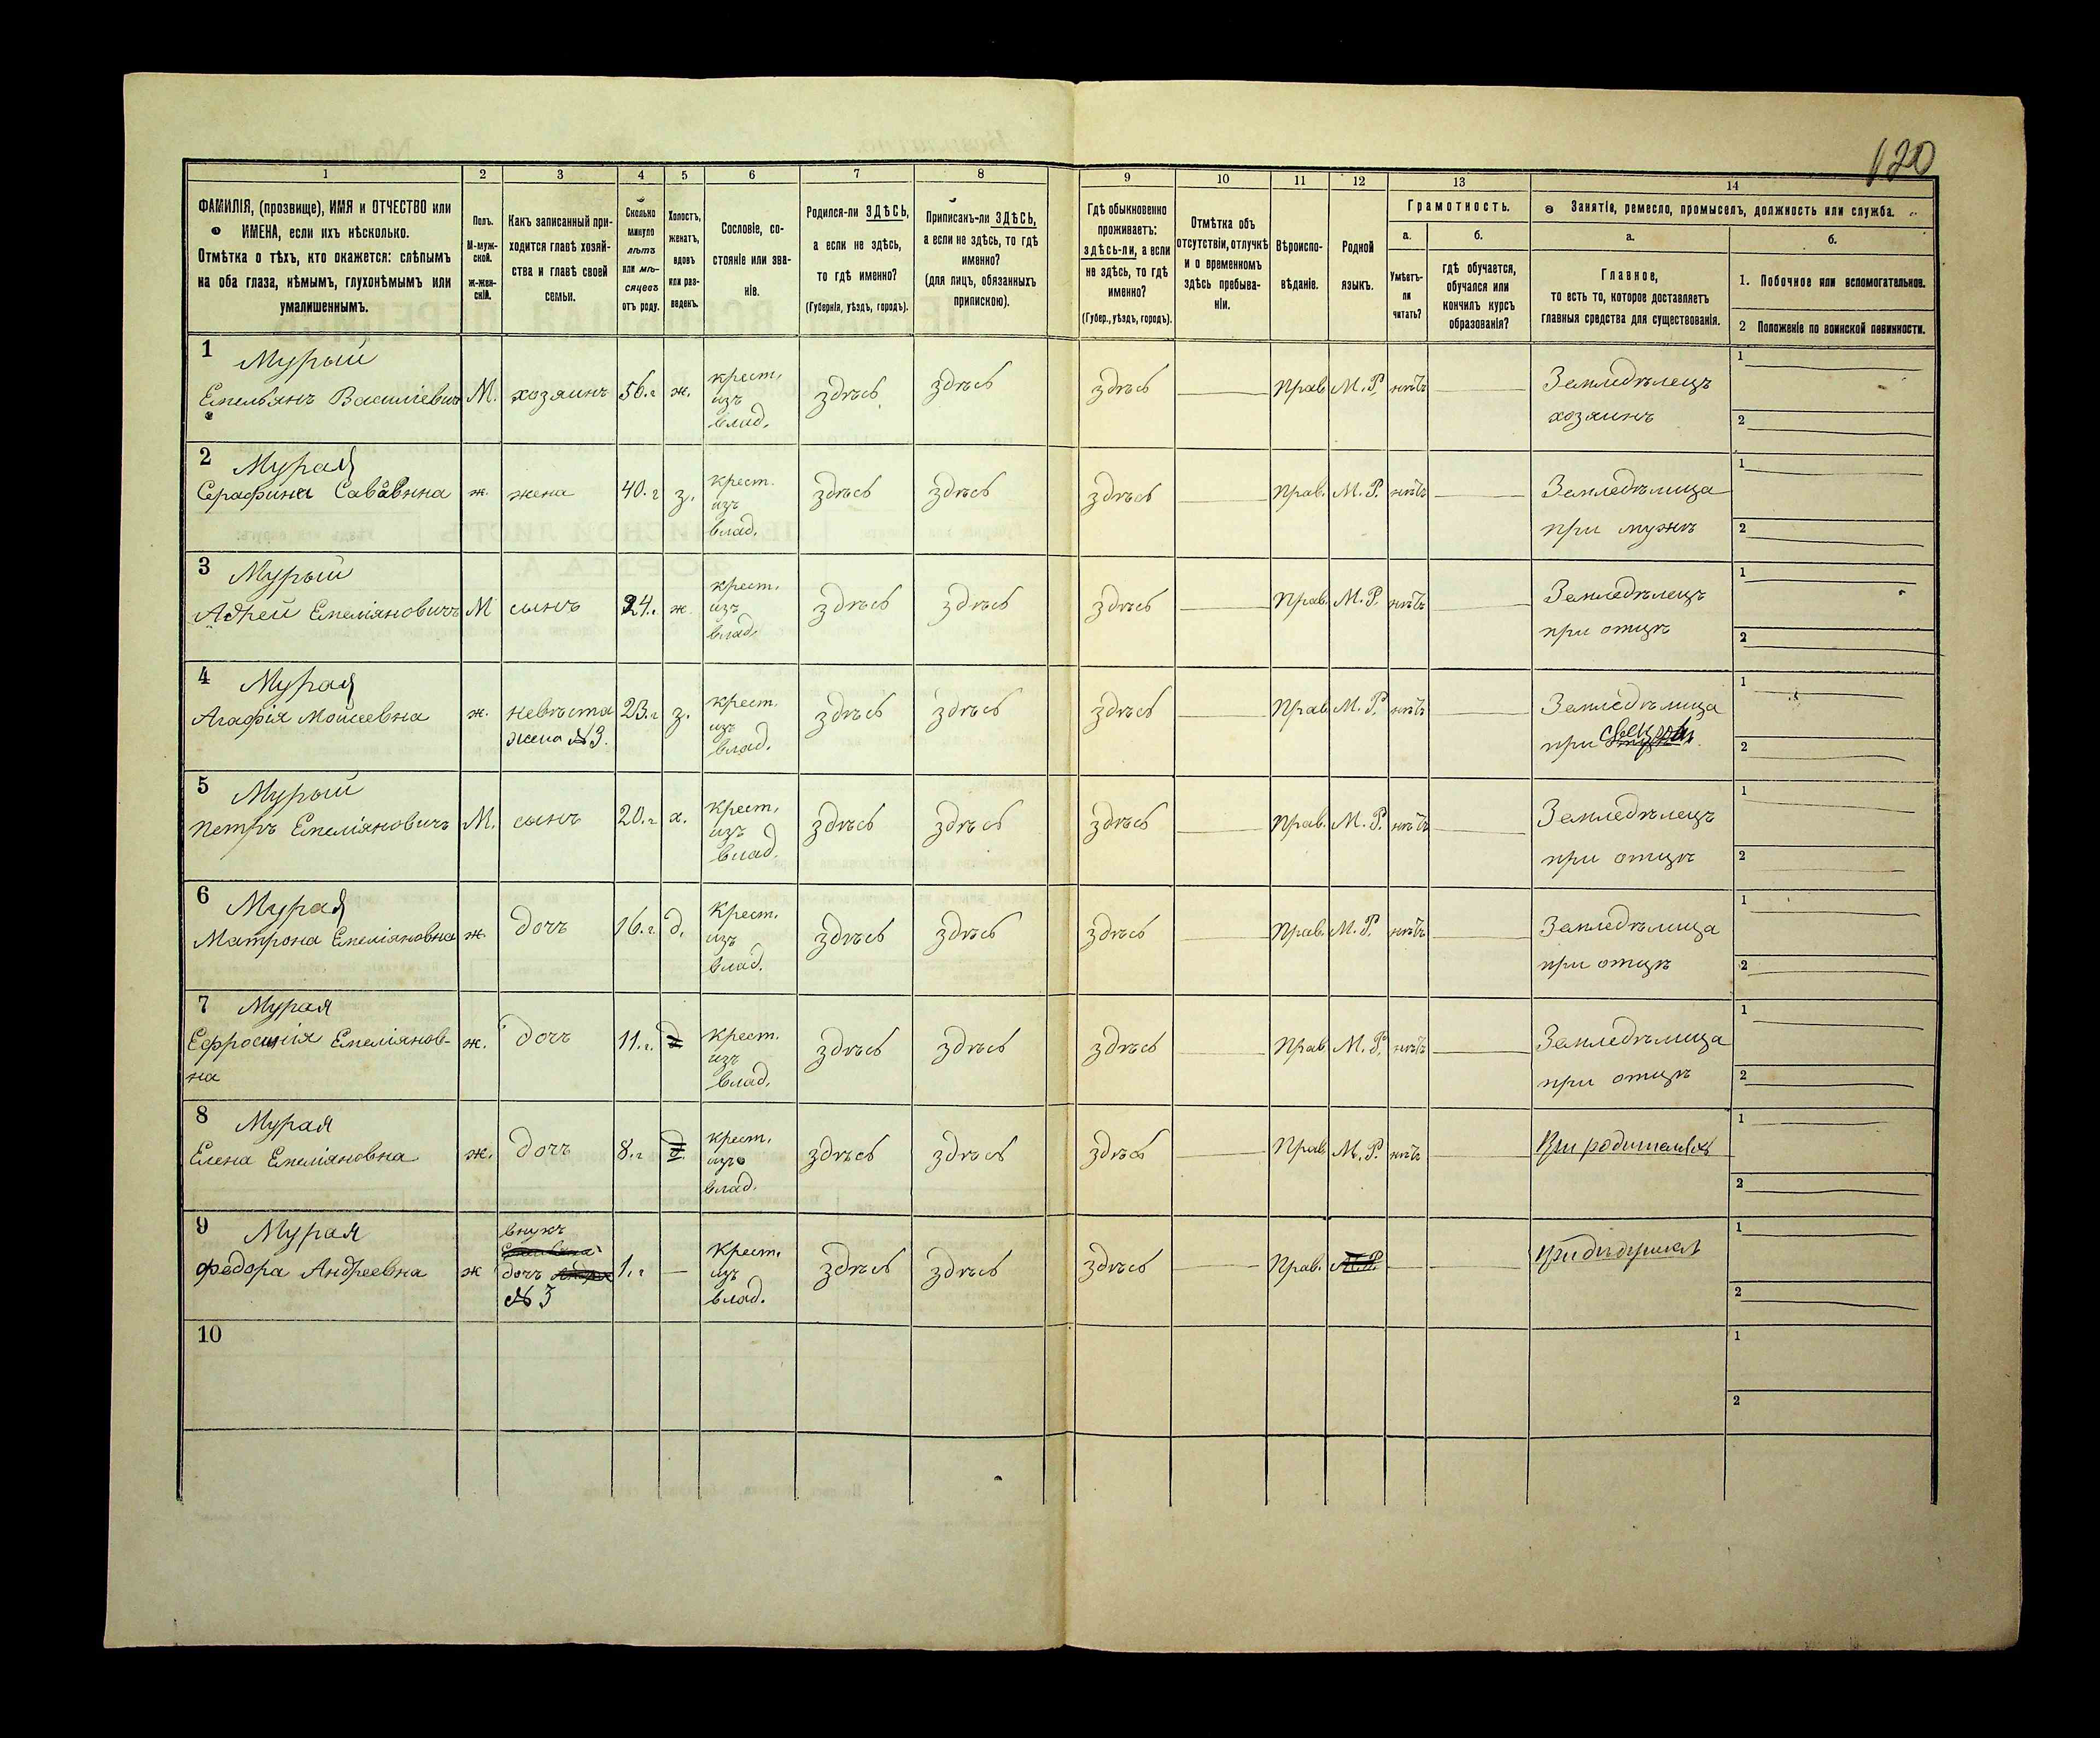 120
1 2 3 4 5 6 7 8 9 10 11 12 13 14
ФАМИЛІЯ, (прозвище), ИМЯ и ОТЧЕСТВО или
ИМЕНА, если ихъ нѣсколько.
Отмѣтка о тѣхъ, кто окажется: слѣпымъ
на оба глаза, нѣмымъ, глухонѣмымъ или
умалишеннымъ.
Полъ.
М-муж-
ской.
ж-жен-
скій.
Какъ записанный при-
ходится главѣ хозяй-
ства и главѣ своей
семьи.
Сколько
минуло
лѣтъ
или мѣ-
сяцевъ
отъ роду.
Холостъ,
женатъ,
вдовъ
или раз-
веденъ.
Сословіе, со-
стояніе или зва-
ніе.
Родился-ли ЗДѢСЬ,
а если не здѣсь,
то гдѣ именно?
(Губернія, уѣздъ, городъ).
Приписанъ-ли ЗДѢСЬ,
а если не здѣсь, то гдѣ
именно?
(для лицъ, обязанныхъ
припискою).
Гдѣ обыкновенно
проживаетъ:
здѣсь-ли, а если
не здѣсь, то гдѣ
именно?
(Губер., уѣздъ, городъ).
Отмѣтка объ
отсутствіи, отлучкѣ
и о временномъ
здѣсь пребыва-
ніи.
Вѣроиспо-
вѣданіе.
Родной
языкъ.
Грамотность.
а.
Умѣетъ-
ли
читать?
б.
гдѣ обучается,
обучался или
кончилъ курсъ
образованія?
Занятіе, ремесло, промыселъ, должность или служба.
а.
Главное,
то есть то, которое доставляетъ
главныя средства для существованія.
б.
1. Побочное или вспомогательное.
2 Положеніе по воинской повинности.
1 Мурый
Емельянъ Василіевичъ М. хозяинъ 56.г ж. крест. изъ влад. здѣсь здѣсь здѣсь Прав. М.Р. нѣтъ Земледѣлецъ
хозяинъ
1
2
2 Мурая
Серафина Савввна ж. жена 40.г з. крест. изъ влад. здѣсь здѣсь здѣсь Прав. М.Р. нѣтъ Земледѣлица
при мужѣ
1
2
3 Мурый
Адрей Емеліяновичъ М сынъ 24. ж. крест. изъ влад. здѣсь здѣсь здѣсь Прав. М.Р. нѣтъ Земледѣлецъ
при отцѣ
1
2
4 Мурая
Агафія Моисеевна ж. невѣста 23.г з. крест. изъ влад. здѣсь здѣсь здѣсь Прав. М.Р. нѣтъ Земледѣлица
жена №3. при
1
2
5 Мурый
Петръ Емеліяновичъ М. сынъ 20.г х. крест. изъ влад. здѣсь здѣсь здѣсь Прав. М.Р. нѣтъ Земледѣлецъ
при отцѣ
1
2
6 Мурая
Матрона Емеліяновна ж. дочъ 16.г д. Крест. изъ влад. здѣсь здѣсь здѣсь Прав. М.Р. нѣтъ Земледѣлица
при отцѣ
1
2
7 Мурая
Ефросинія Емеліянов-
на ж. дочъ 11.г. д крест. изъ влад. здѣсь здѣсь здѣсь Прав. М.Р. нѣтъ Земледѣлица
при отцѣ
1
2
8 Мурая
Елена Емеліяновна ж. дочъ 8.г д. крест. изъ влад. здѣсь здѣсь здѣсь Прав. М.Р. нѣтъ При родителяхъ
1
2
9 Мурая
Федора Андреевна ж внукъ
дочъ 1.г Крест. изъ влад. здѣсь здѣсь здѣсь Прав. М.Р.
№ 3
1
2
10
1
2